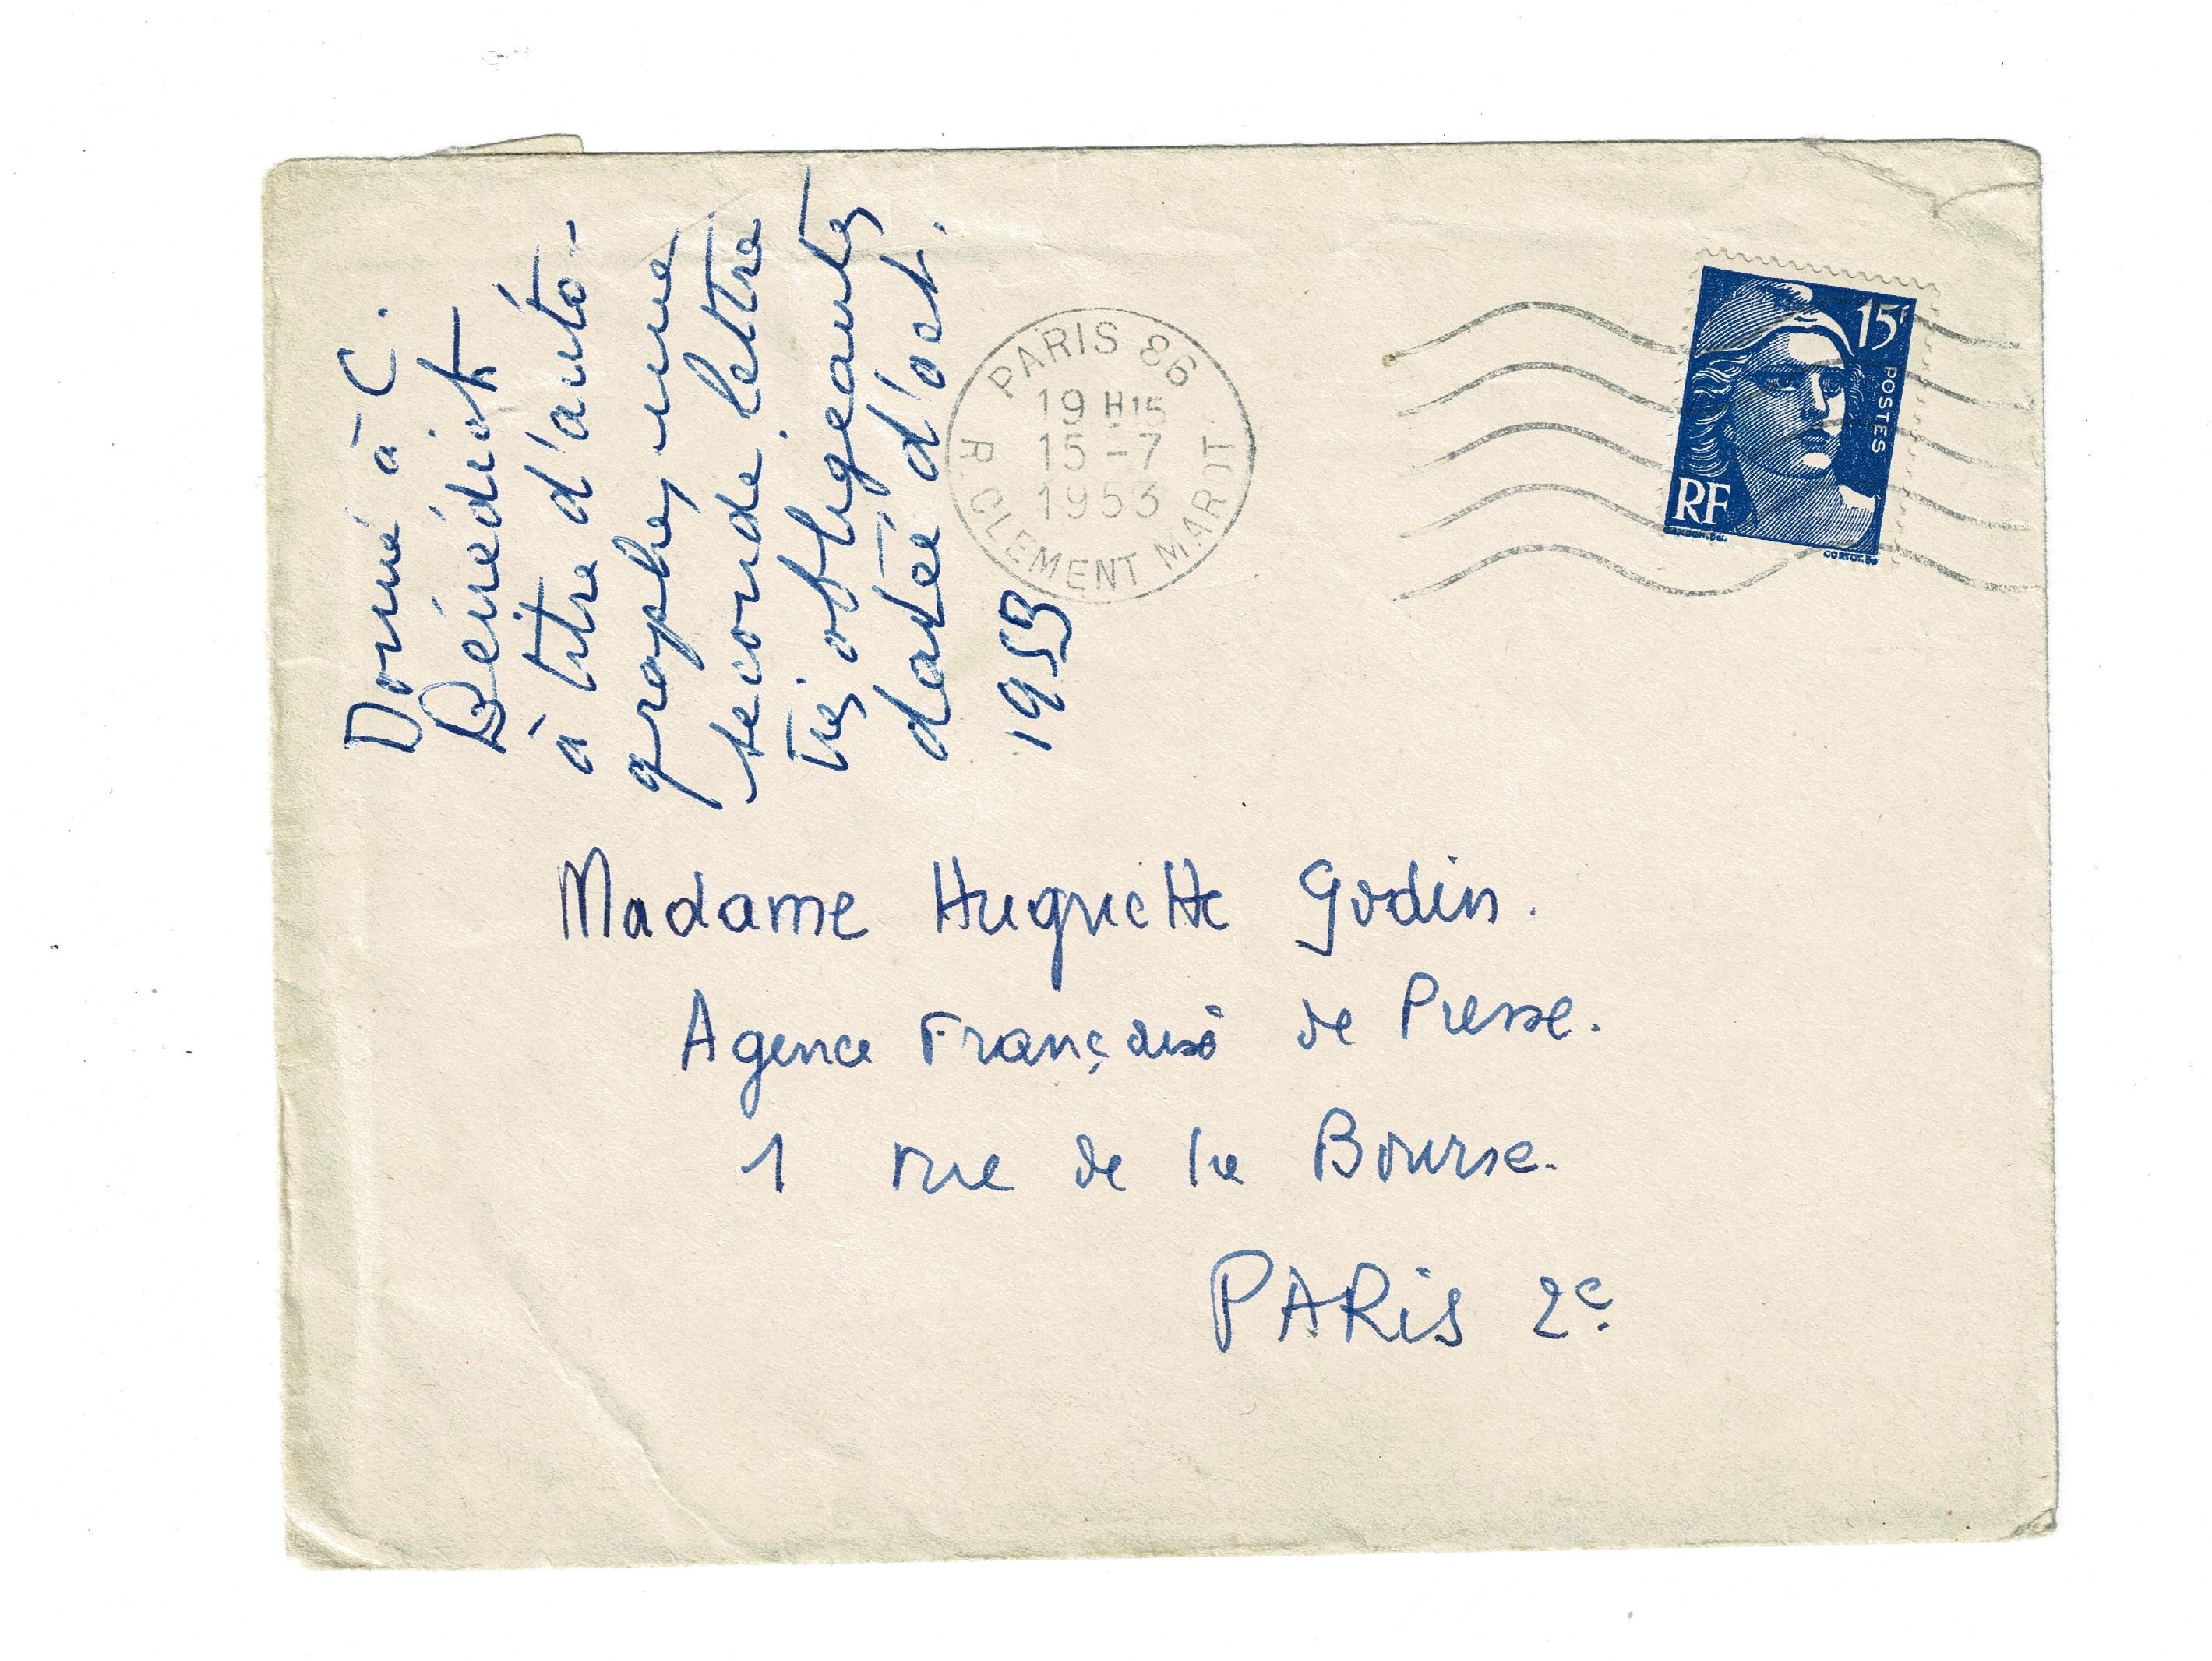 Donné à C.
Bénédict
à titre d'auto-
graphe, une
seconde lettre
très obligeante,
datée d'oct.
1953
PARIS 86
19 H15
15 - 7
1953
R. CLEMENT MAROT
15F
POSTES
RF
GANDON.DEL.
CORTOT.SC
Madame Huguette Godin.
Agence Française de Presse.
1 rue de la Bourse.
PARiS 2e